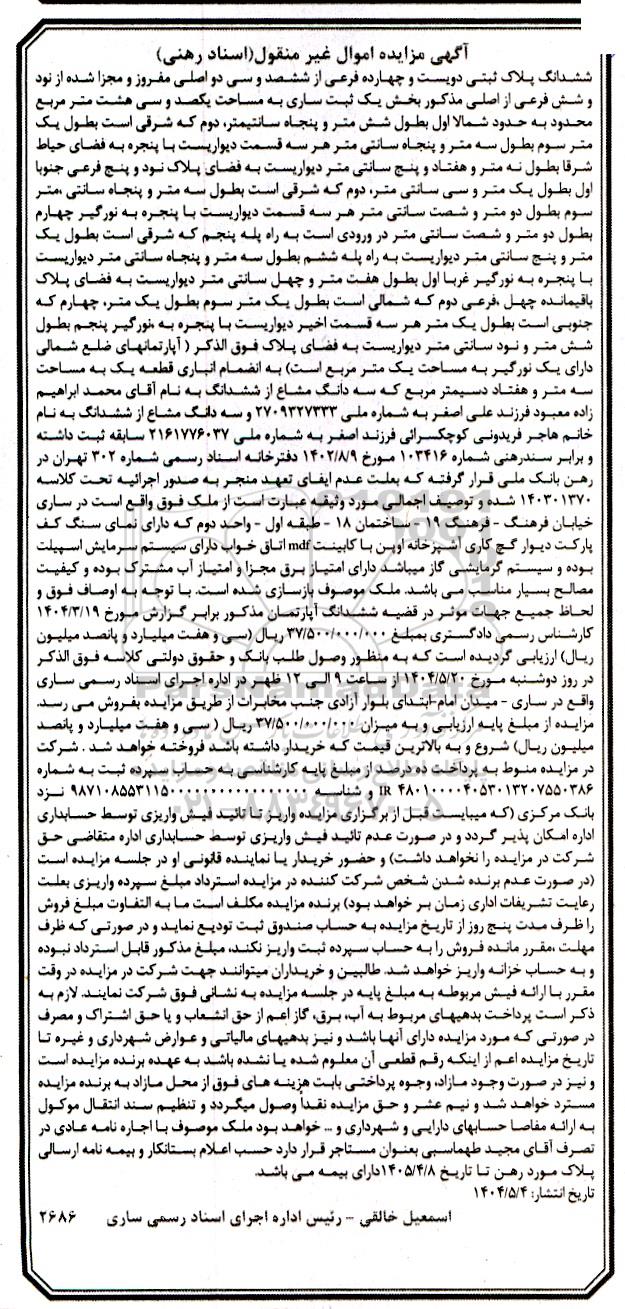 آگهی مزایده اموال غیر منقول(اسناد رهنی)
ششدانگ پلاک ثبتی دویست و چهارده فرعی از ششصد و سی دو اصلی مفروز و مجزا شده از نود
و شش فرعی از اصلی مذکور بخش یک ثبت ساری به مساحت یکصد و سی هشت متر مربع
محدود به حدود شمالا اول بطول شش متر و پنجاه سانتیمتر، دوم که شرقی است بطول یک
متر سوم بطول سه متر و پنجاه سانتی متر هر سه قسمت دیواریست با پنجره به فضای حیاط
شرقا بطول نه متر و هفتاد و پنج سانتی متر دیواریست به فضای پلاک نود و پنج فرعی جنوبا
اول بطول یک متر و سی سانتی متر، دوم که شرقی است بطول سه متر و پنجاه سانتی ,متر
سوم بطول دو متر و شصت سانتی متر هر سه قسمت دیواریست با پنجره به نورگیر چهارم
بطول دو متر و شصت سانتی متر در ورودی است به راه پله پنجم که شرقی است بطول یک
متر و پنج سانتی متر دیواریست به راه پله ششم بطول سه متر و پنجاه سانتی متر دیواریست
با پنجره به نورگیر غربا اول بطول هفت متر و چهل سانتی متر دیواریست به فضای پلاک
باقیمانده چهل ،فرعی دوم که شمالی است بطول یک متر سوم بطول یک متر، چهارم که
جنوبی است بطول یک متر هر سه قسمت اخیر دیواریست با پنجره به ،نورگیر پنجم بطول
شش متر و نود سانتی متر دیواریست به فضای پلاک فوق الذکر ( آپارتمانهای ضلع شمالی
دارای یک نورگیر به مساحت یک متر مربع است) به انضمام انباری قطعه یک به مساحت
سه متر و هفتاد دسیمتر مربع که سه دانگ مشاع از ششدانگ به نام آقای محمد ابراهیم
زاده معبود فرزند علی اصغر به شماره ملی ۲۷۰۹۳۲۷۳۳۳ و سه دانگ مشاع از ششدانگ به نام
خانم هاجر فریدونی کوچکسرائی فرزند اصغر به شماره ملی ۲۱۶۱۷۷۶۰۳۷ سابقه ثبت داشته
و برابر سندرهنی شماره ۱۰۳۴۱۶ مورخ ۱۴۰۲/۸/۹ دفترخانه اسناد رسمی شماره ۳۰۲ تهران در
رهن بانک ملی قرار گرفته که بعلت عدم ایفای تعهد منجر به صدور اجرائیه تحت کلاسه
۱۴۰۳۰۱۳۷۰ شده و توصیف اجمالی مورد وثیقه عبارت است از ملک فوق واقع است در ساری
خیابان فرهنگ - فرهنگ ۱۹ - ساختمان ۱۸ - طبقه اول - واحد دوم که دارای نمای سنگ کف
پارکت دیوار گچ کاری آشپزخانه اوپن با کابینت mdf اتاق خواب دارای سیستم سرمایش اسپیلت
بوده و سیستم گرمایشی گاز میباشد دارای امتیاز برق مجزا و امتیاز آب مشترک بوده و کیفیت
مصالح بسیار مناسب می باشد. ملک موصوف بازسازی شده است. با توجه به اوصاف فوق و
لحاظ جمیع جهات موثر در قضیه ششدانگ آپارتمان مذکور برابر گزارش مورخ ۱۴۰۴/۳/۱۹
کارشناس رسمی دادگستری بمبلغ ۳۷/۵۰۰/۰۰۰/۰۰۰ ریال (سی و هفت میلیارد و پانصد میلیون
ریال) ارزیابی گردیده است که به منظور وصول طلب بانک و حقوق دولتی کلاسه فوق الذکر
در روز دوشنبه مورخ ۱۴۰۴/۵/۲۰ از ساعت ۹ الی ۱۲ ظهر در اداره اجرای اسناد رسمی ساری
واقع در ساری - میدان امام-ابتدای بلوار آزادی جنب مخابرات از طریق مزایده بفروش می رسد.
مزایده از مبلغ پایه ارزیابی و به میزان ۳۷/۵۰۰/۰۰۰/۰۰۰ ریال ( سی و هفت میلیارد و پانصد
میلیون ریال) شروع و به بالاترین قیمت که خریدار داشته باشد فروخته خواهد شد . شرکت
در مزایده منوط به پرداخت ده درصد از مبلغ پایه کارشناسی به حساب سپرده ثبت به شماره
IR ۴۸۰۱۰۰۰۰۴۰۵۳۰۱۳۲۰۷۵۵۰۳۸۶ و شناسه نزد
بانک مرکزی (که میبایست قبل از برگزاری مزایده واریز تا تائید فیش واریزی توسط حسابداری
اداره امکان پذیر گردد و در صورت عدم تائید فیش واریزی توسط حسابداری اداره متقاضی حق
شرکت در مزایده را نخواهد داشت) و حضور خریدار یا نماینده قانونی او در جلسه مزایده است
(در صورت عدم برنده شدن شخص شرکت کننده در مزایده استرداد مبلغ سپرده واریزی بعلت
رعایت تشریفات اداری زمان بر خواهد بود) برنده مزایده مکلف است ما به التفاوت مبلغ فروش
را ظرف مدت پنج روز از تاریخ مزایده به حساب صندوق ثبت تودیع نماید و در صورتی که ظرف
مهلت ،مقرر مانده فروش را به حساب سپرده ثبت واریز نکند، مبلغ مذکور قابل استرداد نبوده
و به حساب خزانه واریز خواهد شد. طالبین و خریداران میتوانند جهت شرکت در مزایده در وقت
مقرر با ارائه فیش مربوطه به مبلغ پایه در جلسه مزایده به نشانی فوق شرکت نمایند. لازم به
ذکر است پرداخت بدهیهای مربوط به آب، برق، گاز اعم از حق انشعاب و یا حق اشتراک و مصرف
در صورتی که مورد مزایده دارای آنها باشد و نیز بدهیهای مالیاتی و عوارض شهرداری و غیره تا
تاریخ مزایده اعم از اینکه رقم قطعی آن معلوم شده یا نشده باشد به عهده برنده مزایده است
و نیز در صورت وجود مازاد، وجوه پرداختی بابت هزینه های فوق از محل مازاد به برنده مزایده
مسترد خواهد شد و نیم عشر و حق مزایده نقداً وصول میگردد و تنظیم سند انتقال موکول
به ارائه مفاصا حسابهای دارایی و شهرداری و ... خواهد بود ملک موصوف با اجاره نامه عادی در
تصرف آقای مجید طهماسبی بعنوان مستاجر قرار دارد حسب اعلام بستانکار و بیمه نامه ارسالی
پلاک مورد رهن تا تاریخ ۱۴۰۵/۴/۸ دارای بیمه می باشد.
تاریخ انتشار: ۱۴۰۴/۵/۴
اسمعیل خالقی - رئیس اداره اجرای اسناد رسمی ساری ۲۶۸۶
ParsNamadData
۰۲۱-۸۸۳۴۹۶۷۰-۵